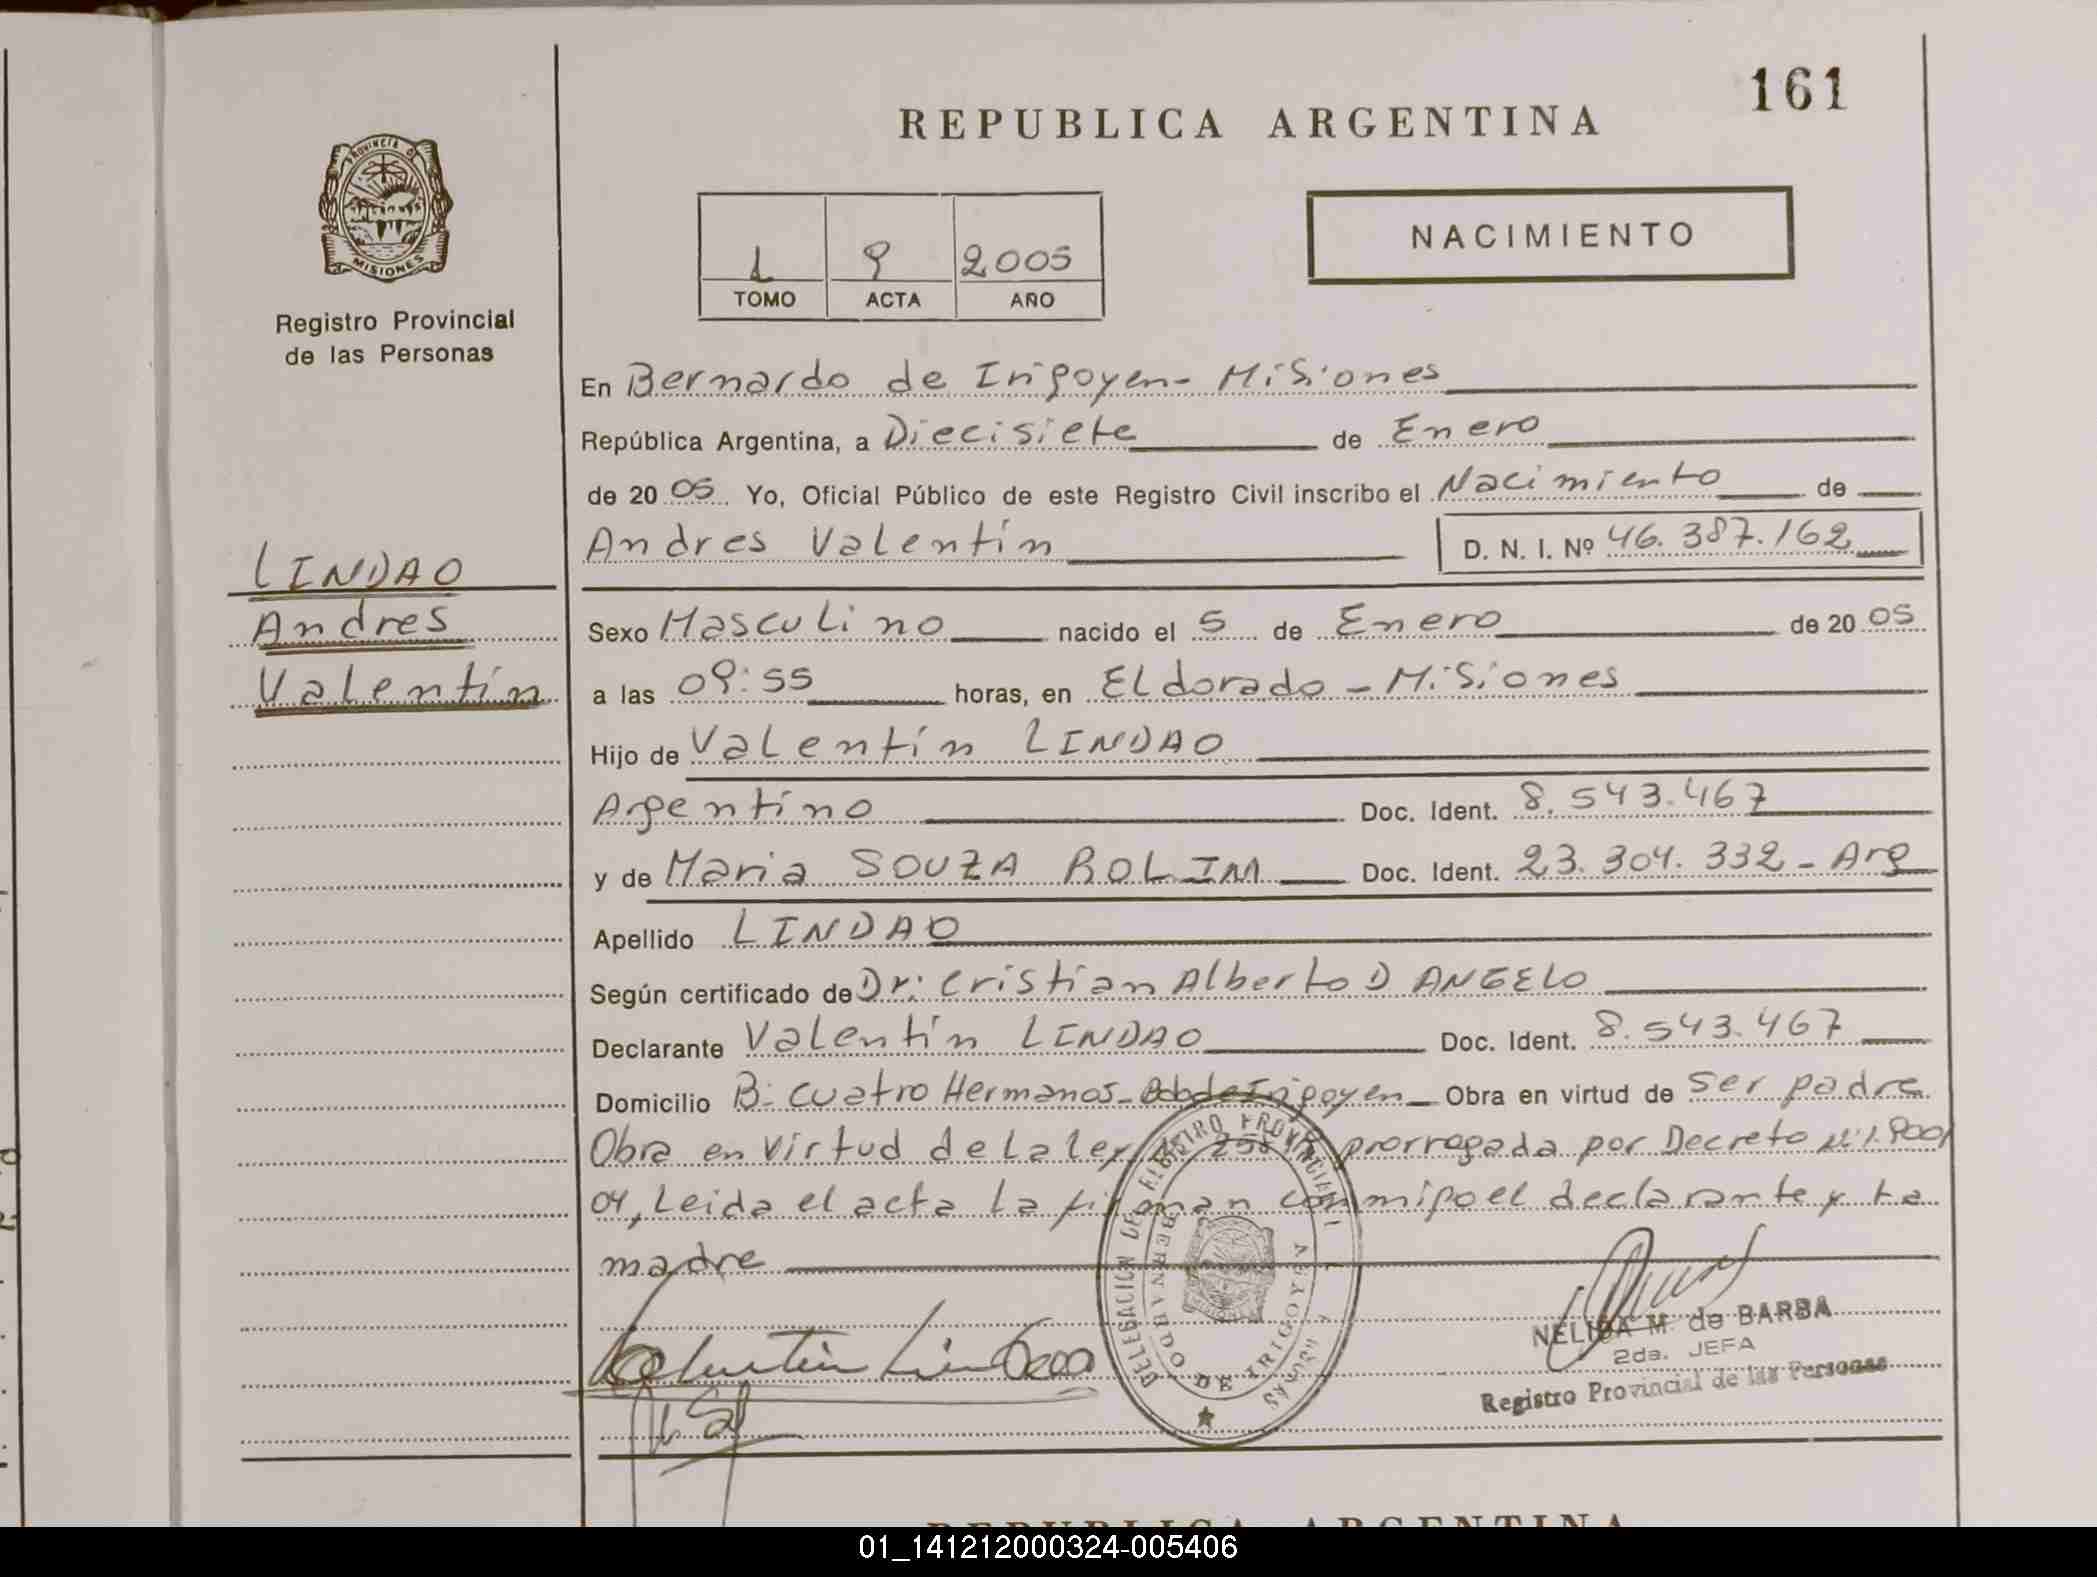 161
REPUBLICA ARGENTINA
PROVINCIA DE
MISIONES
Registro Provincial
de las Personas
NACIMIENTO
1 9 2005
TOMO ACTA AÑO
En Bernardo de Irigoyen - Misiones
República Argentina, a Diecisiete de Enero
de 20 05 Yo, Oficial Público de este Registro Civil inscribo el Nacimiento de
Andres Valentín D. N. I. Nº 46.387.162
LINDAO
Andres
Valentín
Sexo Masculino nacido el 5 de Enero de 20 05
a las 09:55 horas, en Eldorado - Misiones
Hijo de Valentín LINDAO
Argentino Doc. Ident. 8.543.467
y de Maria SOUZA ROLIM Doc. Ident. 23.304.332 - Arg
Apellido LINDAO
Según certificado de Dr: Cristian Alberto D ANGELO
Declarante Valentín LINDAO Doc. Ident. 8.543.467
Domicilio B: Cuatro Hermanos - Bdo de Irigoyen - Obra en virtud de ser padre
Obra en virtud de la ley prorrogada por Decreto Nº 1.900/
04, Leida el acta la firman conmigo el declarante y la
madre
Valentin Lindao
DELEGACION DEL REGISTRO PROVINCIAL
BERNARDO DE IRIGOYEN
NELIDA M. de BARBA
2da. JEFA
Registro Provincial de las Personas
REPUBLICA ARGENTINA
01_141212000324-005406